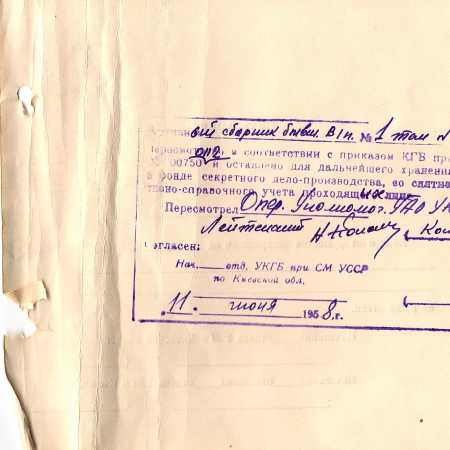 ый сборник бывш. В/н. № 1 том
в соответствии с приказом КГБ
№ 00750 и оставлено для дальнейшего хранения
в фонде секретного дело-производства, со снятием
справочного учета проходящих лиц.
Пересмотрел Опер. Уполномоч. УАО
Лейтенант
Согласен:
Нач. отд. УКГБ при СМ УССР
по Киевской обл.
„11 июня 1958 г.